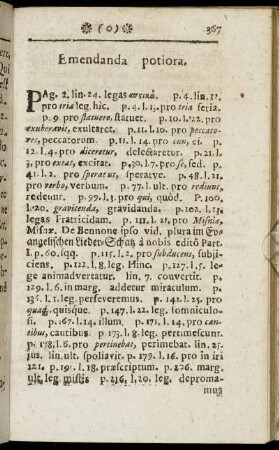 (o)
367
Emendanda potiora.
PAg. 2. lin. 24. legas p. 4. lin. 12.
pro tria leg. hic. p. 4. l. 13. pro tria feria.
p. 9 pro statuere, statuet. p. 10. l. 22. pro
exuberavit, exultaret. p. 11. l. 10. pro peccato-
res, peccatorum p. 11. l. 14. pro cun, ci. p.
12. l. 4. pro diceretur, delectaretur. p. 21. l.
3. pro extat, excitat. p. 30. l. 7. pro se, sed.
p. 41. l. 2. pro speratus, speratve. p. 48. l. 21.
pro verbo, verbum. p. 77. l. ult. pro rediunt,
redeunt. p. 99. l. 1. pro qui, quòd. p. 100.
l. 20. gravitenda, gravidanda. p. 102. l. 13.
legas Fratricidam. p. 111. l. 21. pro Misilia,
Misnæ. De Bennone ipso vid. plura im Ev-
angelischen Lieder-Schatz à nobis editô Part.
I. p. 60. sqq. p. 115. l. 2. pro subducens, subji-
ciens. p. 122. l. 8. leg. Hinc. p. 127. l. 5. le-
ge animadvertatur. lin. 7. couvertit. p.
129. l. 6. in marg. addetur miraculum. p.
135. l. 1. leg. perseveremus. p. 142. l. 25. pro
quaq;, quisque. p. 147. l. 22. leg. somniculo-
si. p. 167. l. 14. illum. p. 171. l. 14. pro can-
tibus, cautibus p. 173. l. 8. leg. pertimescunt.
p. 178. l. 6. pro pertinebat, perimebat. lin. 25.
jus. lin. ult. spoliavit. p. 179. l. 16. pro in iri
221. p. 191. l. 18. præscriptum. p. 226. marg.
ult. leg. mistis p. 236, l. 20. leg. deproma-
mus